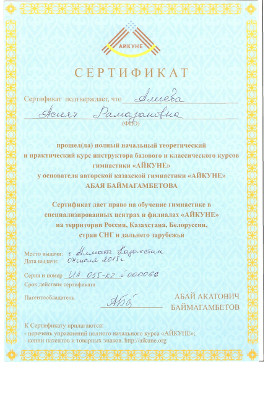 АЙКУНЕ
СЕРТИФИКАТ
Сертификат подтверждает, что Алиева
Рамазановна
(ФИО)
прошел(ла) полный начальный теоретический
и практический курс инструктора базового и классического курсов
гимнастики «АЙКУНЕ»
у основателя авторской казахской гимнастики «АЙКУНЕ»
АБАЯ БАЙМАГАМБЕТОВА
Сертификат дает право на обучение гимнастике в
специализированных центрах и филиалах «АЙКУНЕ»
на территории России, Казахстана, Белоруссии,
стран СНГ и дальнего зарубежья
Место выдачи: г. Алматы
Дата выдачи:
Серия и номер
Срок действия сертификата
АБАЙ АКАТОВИЧ
БАЙМАГАМБЕТОВ
К Сертификату прилагаются: